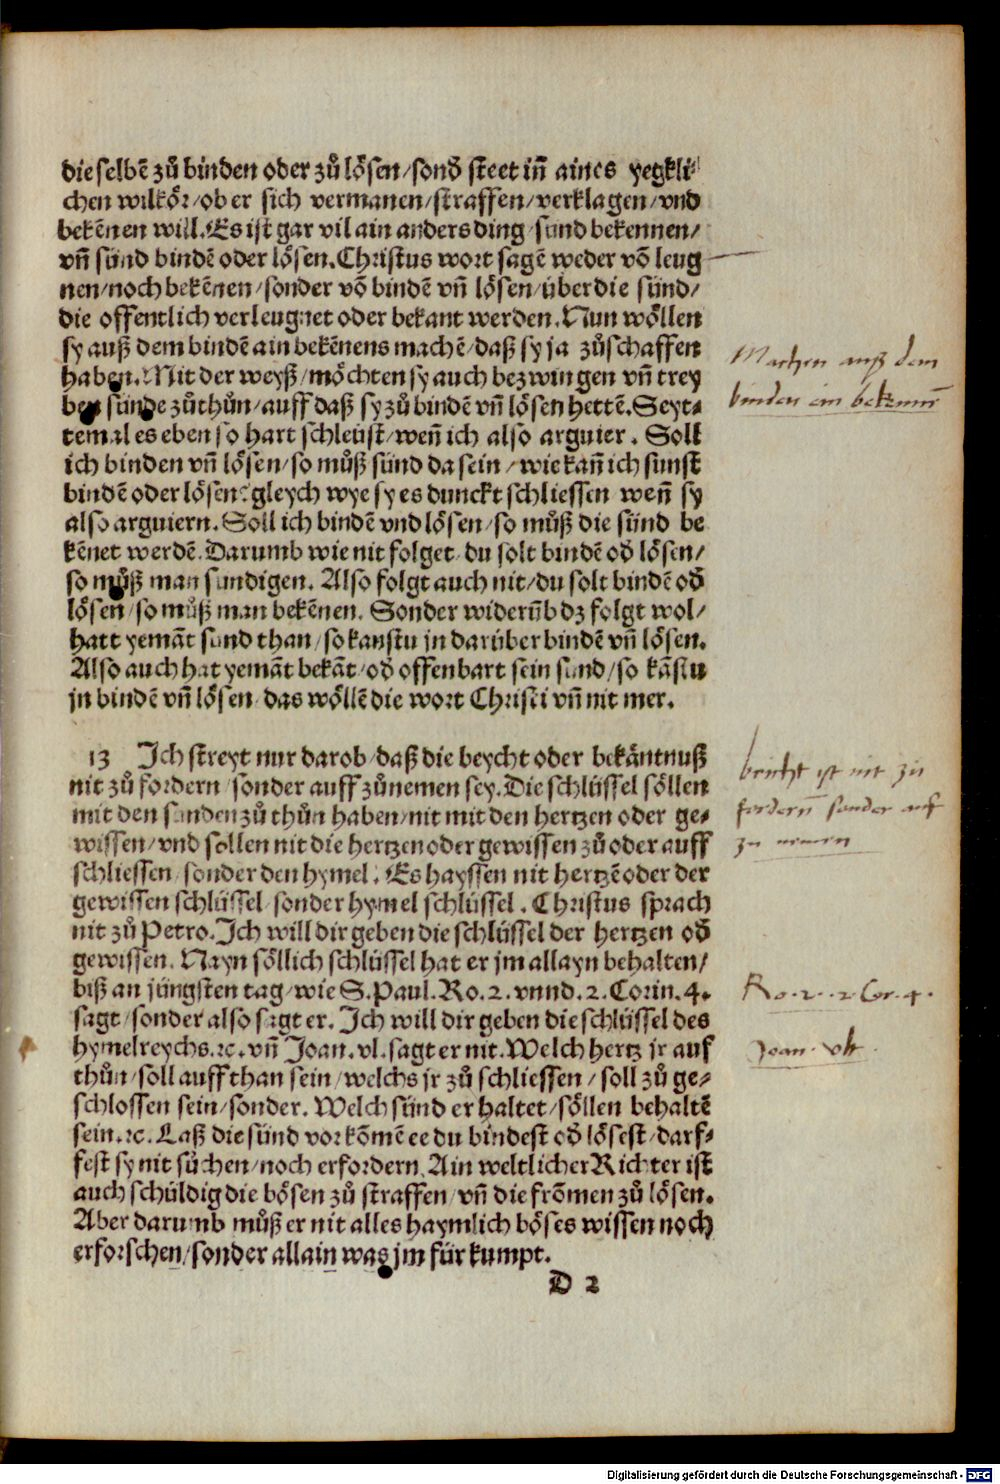 die selbē zů binden oder zů lösen/sonď steet inn̄ aines yegkli⸗
chen wilkör/ob er sich vermanen/straffen/verklagen/vnd
bekēnen will. Es ist gar vil ain anders ding/sünd bekennen/
vn̄ sünd bindē oder lösen. Christus wort sagē weder vō leug
nen/noch bekēnen/sonder vō bindē vn̄ lösen/über die sünd/
die offentlich verleugnet oder bekant werden. Nun wöllen
sy auß dem bindē ain bekēnens machē/daß sy ja zůschaffen
haben. Mit der weyß/möchten sy auch bezwingen vn̄ trey
ben sünde zůthůn/auff daß sy zů bindē vn̄ lösen hettē. Seyt⸗
temal es eben so hart schleüst/wen̄ ich also arguier. Soll
ich binden vn̄ lösen/so můß sünd da sein/wie kan̄ ich sunst
bindē oder lösen? gleych wye sy es dunckt schliessen wen̄ sy
also arguiern. Soll ich bindē vnd lösen/so můß die sünd be
kēnet werdē. Darumb wie nit folget/du solt bindē oď lösen/
so můß man sundigen. Also folgt auch nit/du solt bindē oď
lösen/so můß man bekēnen. Sonder widerūb dz folgt wol/
hatt yemāt sund than/so kanstu jn darüber bindē vn̄ lösen.
Also auch hat yemāt bekāt/oď offenbart sein sund/so kāstu
jn bindē vn̄ lösen/das wöllē die wort Christi vn̄ nit mer.
13 Ich streyt nur darob/daß die beycht oder bekäntnuß
nit zů fordern/sonder auff zůnemen sey. Die schlüssel söllen
mit den sunden zů thůn haben/nit mit den hertzen oder ge⸗
wissen/vnd sollen nit die hertzen oder gewissen zů oder auff
schliessen/sonder den hymel. Es hayssen nit hertzē oder der
gewissen schlüssel/sonder hymel schlüssel. Christus sprach
nit zů Petro. Ich will dir geben die schlüssel der hertzen oď
gewissen. Nayn söllich schlüssel hat er jm allayn behalten/
biß an jüngsten tag/wie S. Paul. Ro. 2. vnnd. 2. Corin. 4.
sagt/sonder also sagt er. Ich will dir geben die schlüssel des
hymelreychs. ꝛc. vn̄ Joan. vl. sagt er nit. Welch hertz jr auf
thůn/soll auff than sein/welchs jr zů schliessen/soll zů ge⸗
schlossen sein/sonder. Welch sünd er haltet/söllen behaltē
sein. ꝛc. Laß die sünd vor kōmē ee du bindest oď lösest/darf⸗
fest sy nit sůchen/noch erfordern. Ain weltlicher Richter ist
auch schuldig die bösen zů straffen/vn̄ die frōmen zů lösen.
Aber darumb můß er nit alles haymlich böses wissen noch
erforschen/sonder allain was jm für kumpt.
D 2
Machen auß dem
binden ein bekennē
beicht ist nit zu
fordern̄ sonder auf
zu nemen
Ro. 2. 2 Cor. 4.
Joan. vlt.
Digitalisierung gefördert durch die Deutsche Forschungsgemeinschaft - DFG